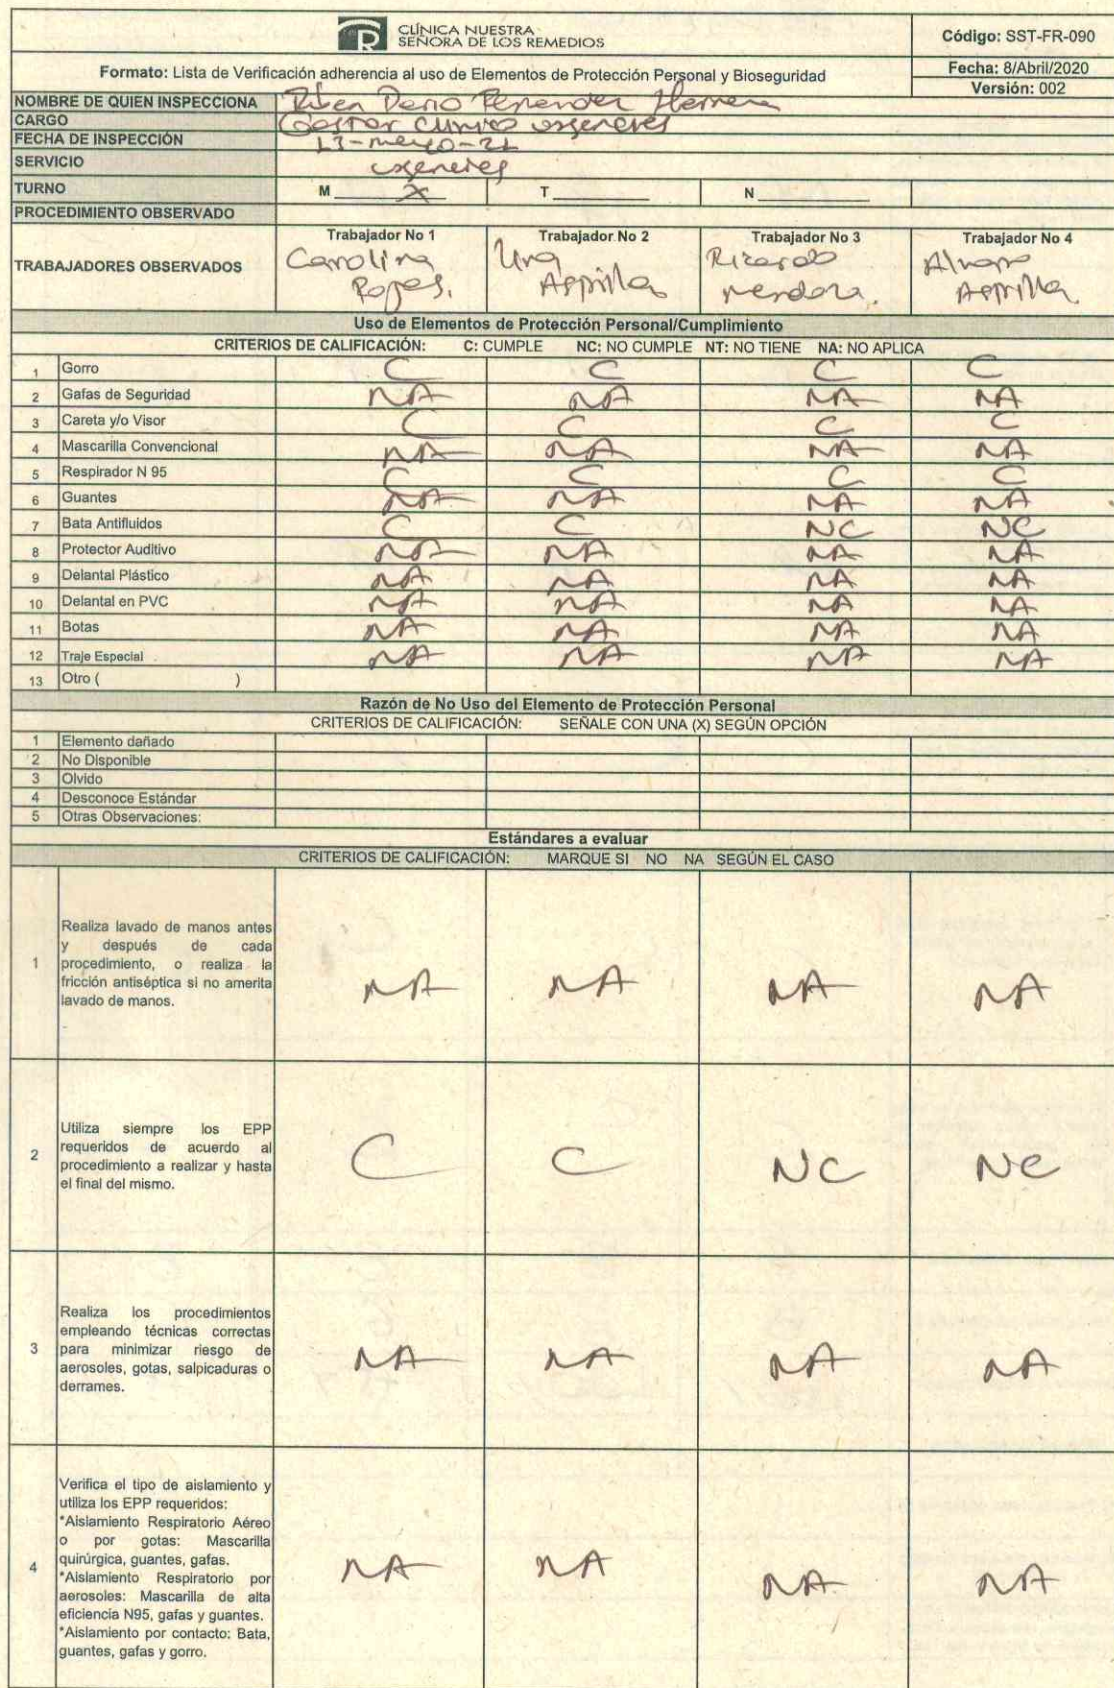 CLÍNICA NUESTRA
SEÑORA DE LOS REMEDIOS
Código: SST-FR-090
Formato: Lista de Verificación adherencia al uso de Elementos de Protección Personal y Bioseguridad
Fecha: 8/Abril/2020
Versión: 002
NOMBRE DE QUIEN INSPECCIONA Dario Herrera
CARGO Gestor clinico urgencias
FECHA DE INSPECCIÓN 13-mayo-21
SERVICIO urgencias
TURNO M X T N
PROCEDIMIENTO OBSERVADO
TRABAJADORES OBSERVADOS
Trabajador No 1 Trabajador No 2 Trabajador No 3 Trabajador No 4
Carolina Ricardo Alvaro
Asprilla Mendoza. Asprilla
Uso de Elementos de Protección Personal/Cumplimiento
CRITERIOS DE CALIFICACIÓN: C: CUMPLE NC: NO CUMPLE NT: NO TIENE NA: NO APLICA
1 Gorro C C C C
2 Gafas de Seguridad NA NA NA NA
3 Careta y/o Visor C C C C
4 Mascarilla Convencional NA NA NA NA
5 Respirador N 95 C C C C
6 Guantes NA NA NA NA
7 Bata Antifluidos C C NC NC
8 Protector Auditivo NA NA NA NA
9 Delantal Plástico NA NA NA NA
10 Delantal en PVC NA NA NA NA
11 Botas NA NA NA NA
12 Traje Especial NA NA NA NA
13 Otro ( )
Razón de No Uso del Elemento de Protección Personal
CRITERIOS DE CALIFICACIÓN: SEÑALE CON UNA (X) SEGÚN OPCIÓN
1 Elemento dañado
2 No Disponible
3 Olvido
4 Desconoce Estándar
5 Otras Observaciones:
Estándares a evaluar
CRITERIOS DE CALIFICACIÓN: MARQUE SI NO NA SEGÚN EL CASO
Realiza lavado de manos antes
y después de cada
1 procedimiento, o realiza la
fricción antiséptica si no amerita
lavado de manos.
NA NA NA NA
Utiliza siempre los EPP
requeridos de acuerdo al
2 procedimiento a realizar y hasta
el final del mismo.
C C NC NC
Realiza los procedimientos
empleando técnicas correctas
3 para minimizar riesgo de
aerosoles, gotas, salpicaduras o
derrames.
NA NA NA NA
Verifica el tipo de aislamiento y
utiliza los EPP requeridos:
*Aislamiento Respiratorio Aéreo
o por gotas: Mascarilla
quirúrgica, guantes, gafas.
4 *Aislamiento Respiratorio por
aerosoles: Mascarilla de alta
eficiencia N95, gafas y guantes.
*Aislamiento por contacto: Bata,
guantes, gafas y gorro.
NA NA NA NA